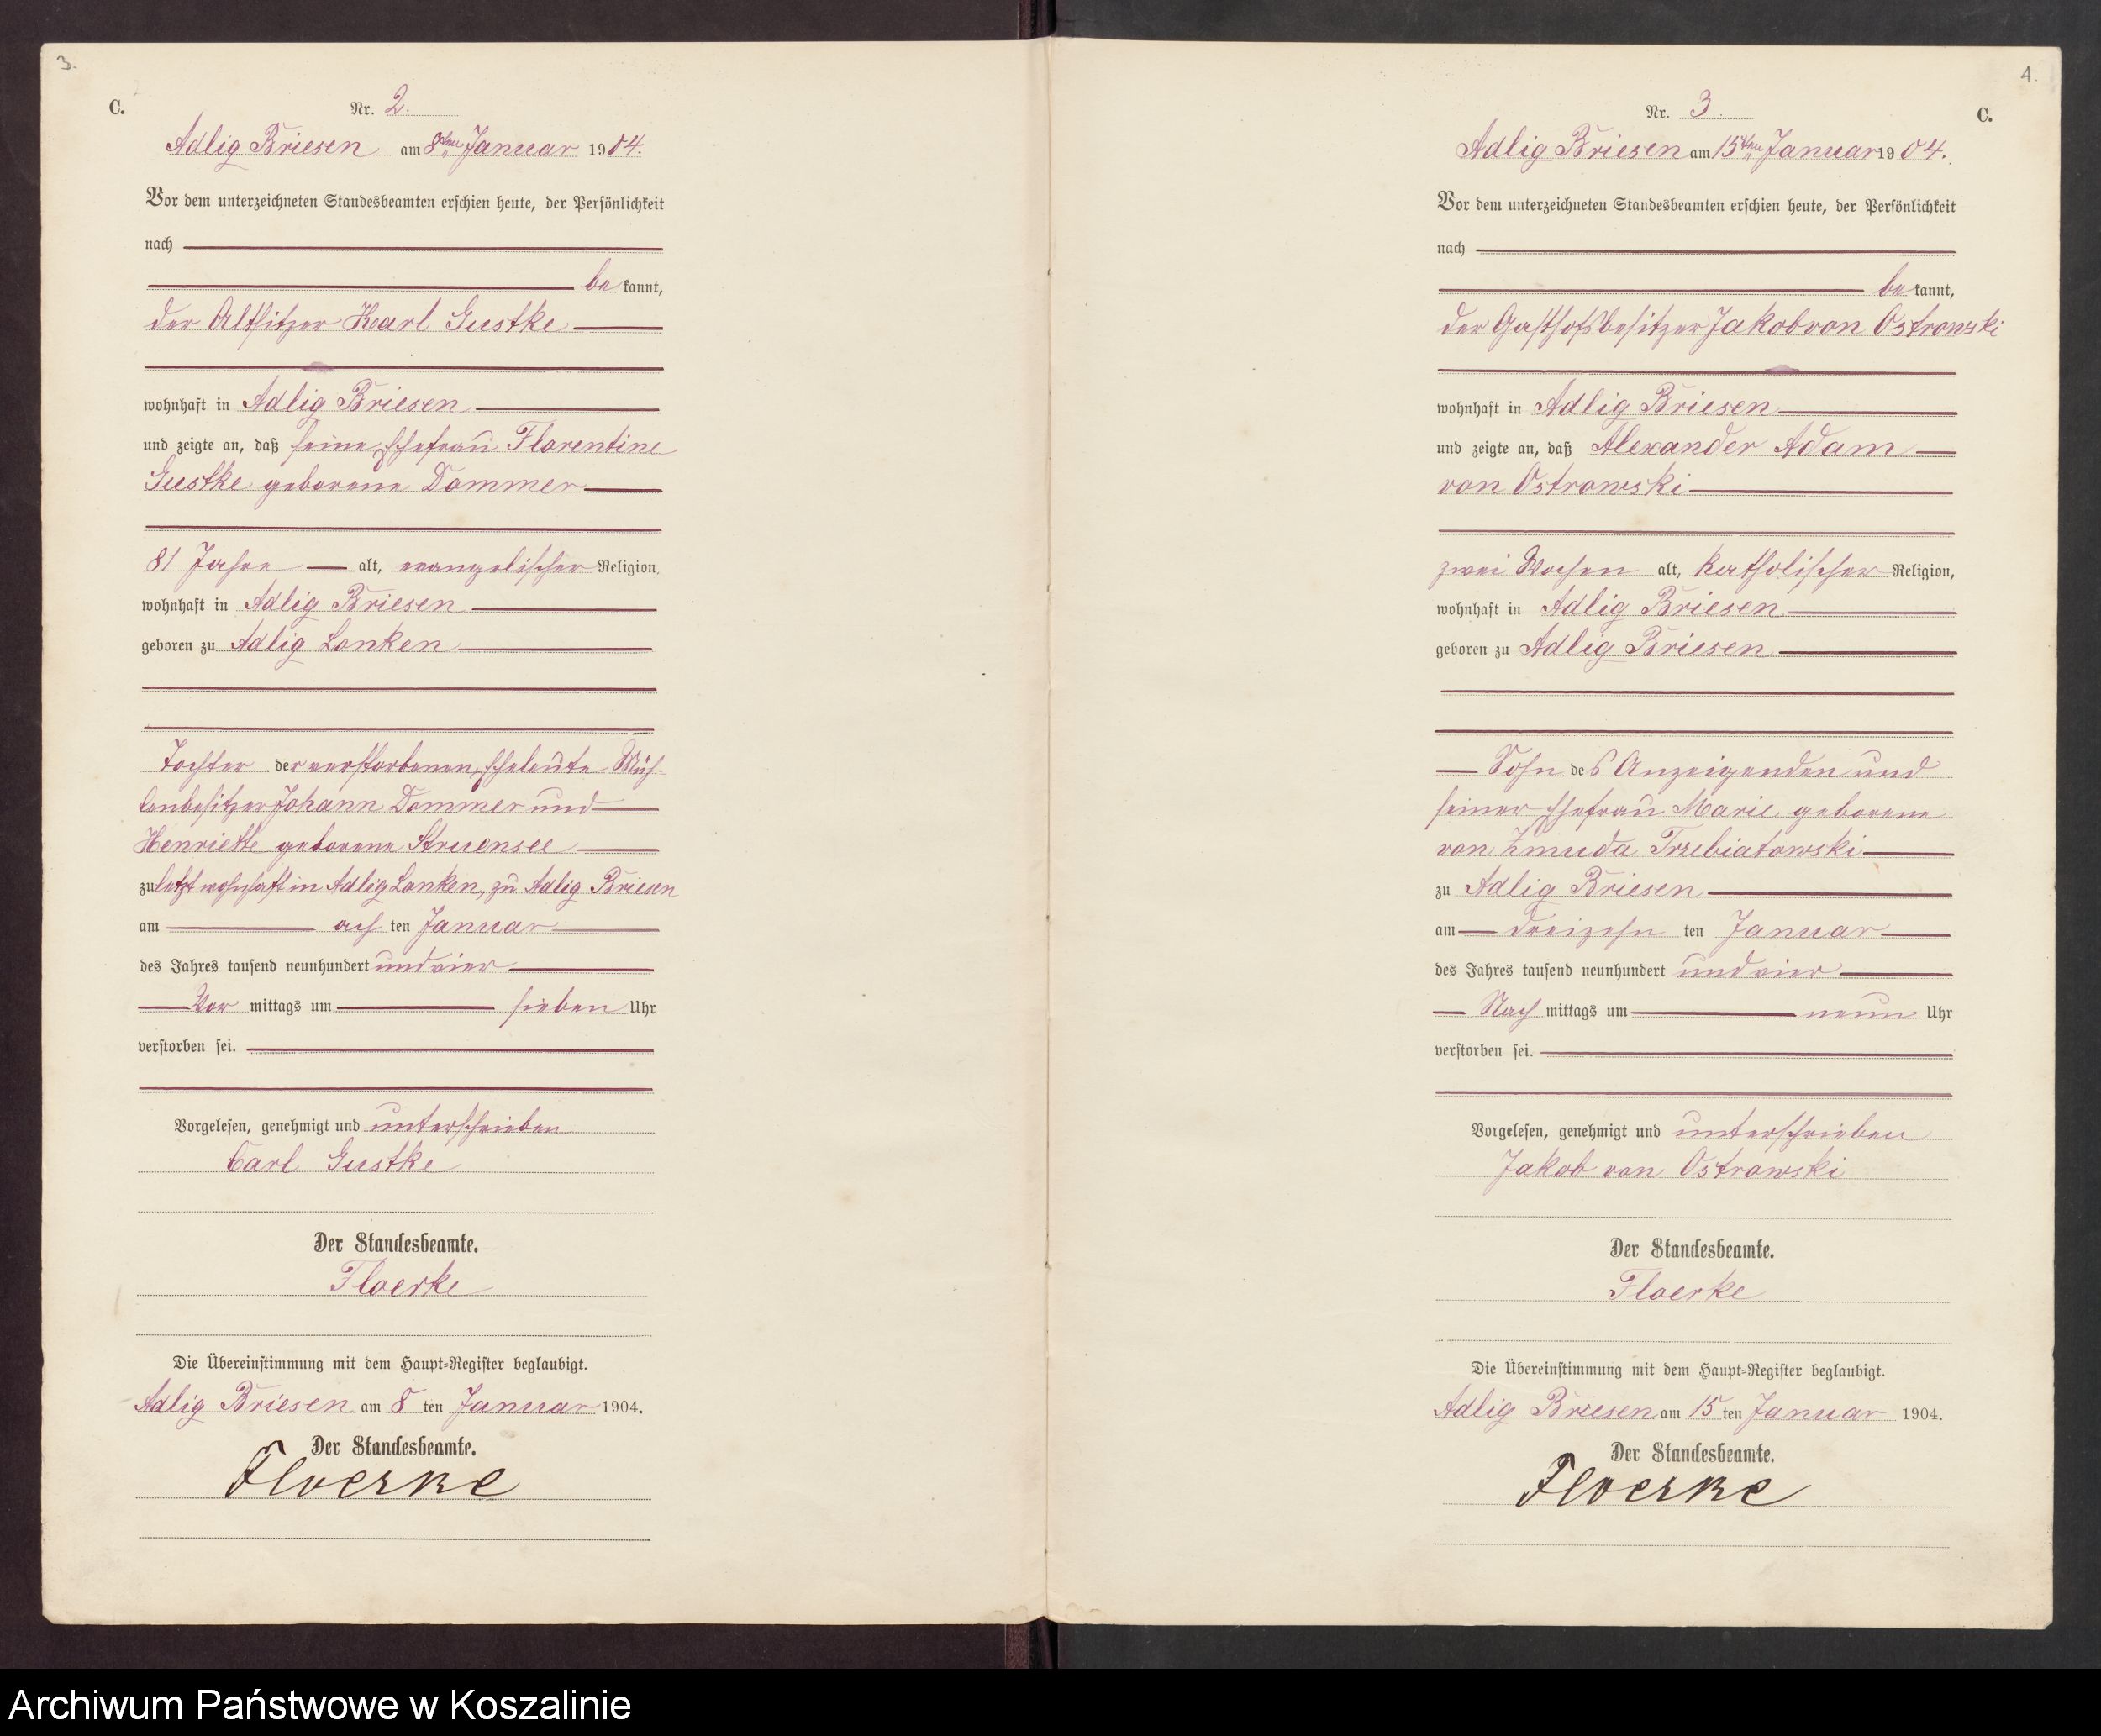 3.
C.
Nr. 2.
Adlig Briesen am 8ten Januar 1904.
Vor dem unterzeichneten Standesbeamten erschien heute, der Persönlichkeit
nach
bekannt,
der Altsitzer Karl Gustke
wohnhaft in Adlig Briesen
und zeigte an, daß seine Ehefrau Florentine
Gustke geborene Dommer
81 Jahre alt, evangelischer Religion,
wohnhaft in Adlig Briesen
geboren zu Adlig Lonken
Tochter der verstorbenen Eheleute Müh-
lenbesitzer Johann Dommer und
Henriette geborene Struensee
zuletzt wohnhaft in Adlig Lonken, zu Adlig Briesen
am achten Januar
des Jahres tausend neunhundert und vier
Vormittags um sieben Uhr
verstorben sei.
Vorgelesen, genehmigt und unterschrieben
Carl Gustke
Der Standesbeamte.
Floerke
Die Übereinstimmung mit dem Haupt-Register beglaubigt.
Adlig Briesen am 8ten Januar 1904.
Der Standesbeamte.
Floerke
4.
Nr. 3.
C.
Adlig Briesen am 15ten Januar 1904.
Vor dem unterzeichneten Standesbeamten erschien heute, der Persönlichkeit
nach
bekannt,
der Gasthofsbesitzer Jakob von Ostrowski
wohnhaft in Adlig Briesen
und zeigte an, daß Alexander Adam
von Ostrowski
zwei Wochen alt, katholischer Religion,
wohnhaft in Adlig Briesen
geboren zu Adlig Briesen
Sohn des Anzeigenden und
seiner Ehefrau Marie geborene
von Zmuda Trzebiatowski
zu Adlig Briesen
am dreizehnten Januar
des Jahres tausend neunhundert und vier
Nachmittags um neun Uhr
verstorben sei.
Vorgelesen, genehmigt und unterschrieben
Jakob von Ostrowski
Der Standesbeamte.
Floerke
Die Übereinstimmung mit dem Haupt-Register beglaubigt.
Adlig Briesen am 15ten Januar 1904.
Der Standesbeamte.
Floerke
Archiwum Państwowe w Koszalinie